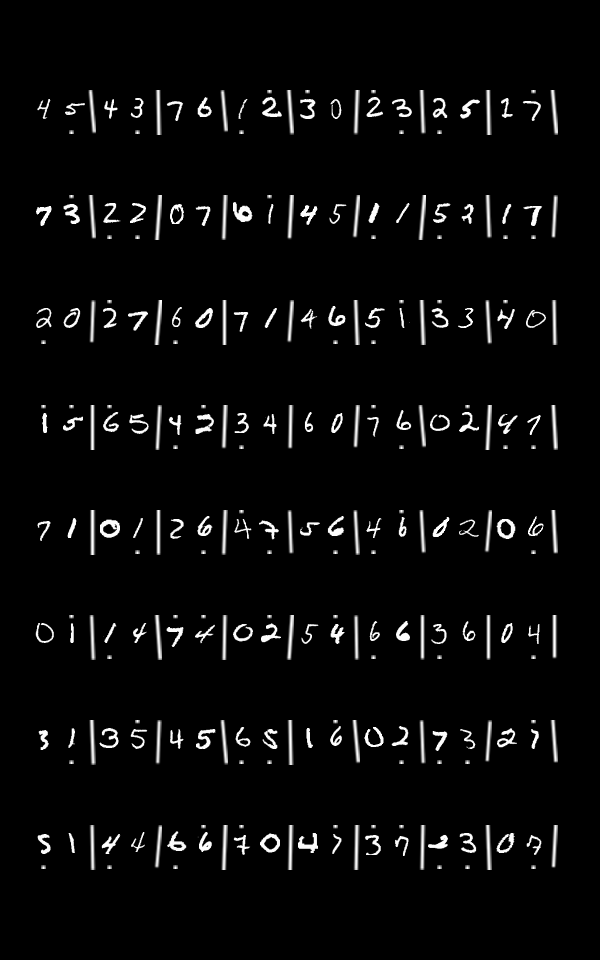 4 5̣ | 4 3̣ | 7 6 | 1̣ 2̇ | 3̇ 0 | 2̇ 3̣ | 2̣ 5 | 1 7̇ |
7 3̇ | 2̣ 2̣ | 0 7 | 6 1̇ | 4 5 | 1̣ 1 | 5̣ 2 | 1̣ 7̣ |
2̣ 0 | 2̇ 7 | 6̣ 0 | 7 1 | 4 6̣ | 5̣ 1̇ | 3̇ 3 | 4̇ 0 |
1̇ 5̇ | 6̇ 5 | 4̣ 2̇ | 3̣ 4 | 6 0 | 7̇ 6̣ | 0 2̇ | 4 7̣ |
7 1 | 0 1̣ | 2 6̣ | 4̇ 7̣ | 5 6̣ | 4̣ 6̇ | 0 2 | 0 6̣ |
0 1̇ | 1̣ 4 | 7̇ 4̇ | 0 2̇ | 5 4̇ | 6̣ 6 | 3̣ 6 | 0 4̣ |
3 1̣ | 3 5̇ | 4 5 | 6̣ 5̣ | 1 6̇ | 0 2̣ | 7̣ 3̣ | 2 7̇ |
5̣ 1 | 4̣ 4 | 6̣ 6̇ | 7̇ 0 | 4 7̇ | 3̇ 7̇ | 2̣ 3̣ | 0 7̣ |